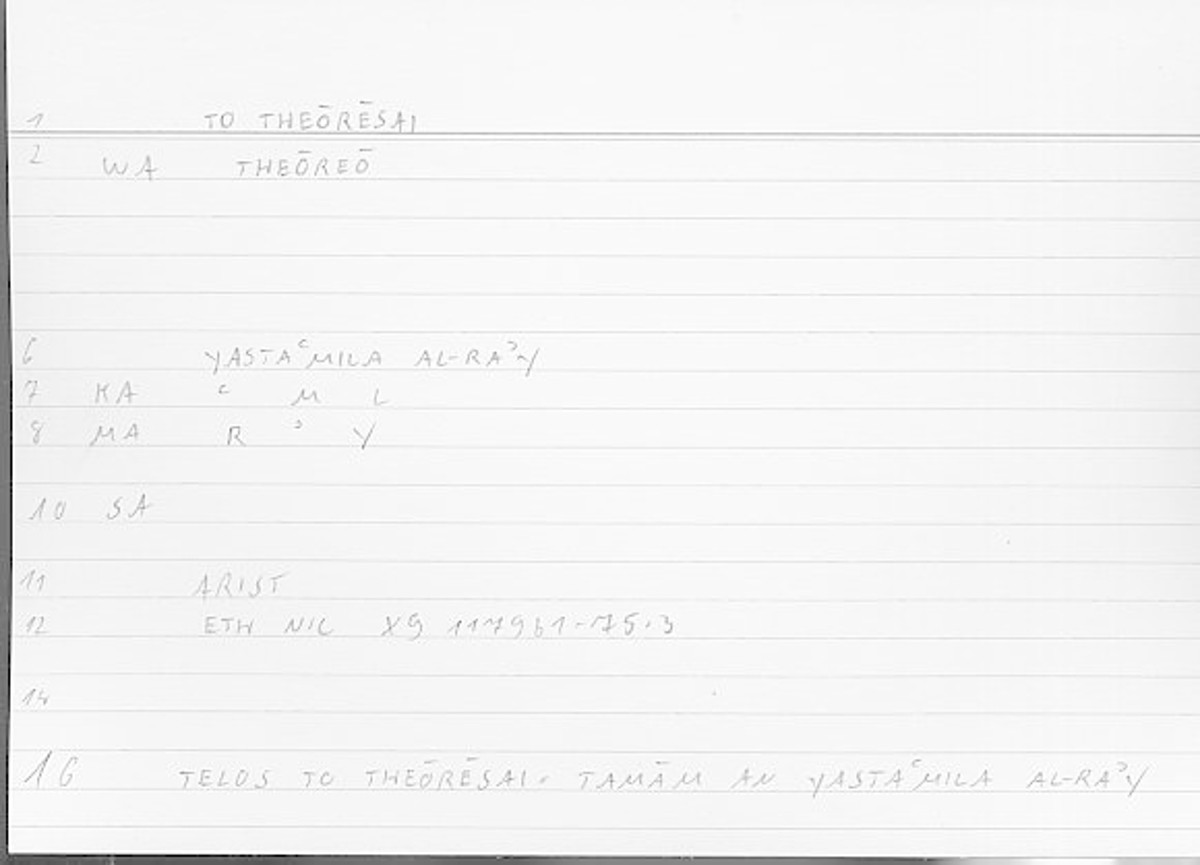 1 TO THEŌRĒSAI
2 WA THEŌREŌ
6 YASTAʿMILA AL-RAʾY
7 KA ʿ M L
8 MA R ʾ Y
10 SA
11 ARIST
12 ETH NIC X9 1179b1-75.3
14
16 TELOS TO THEŌRĒSAI. TAMĀM AN YASTAʿMILA AL-RAʾY